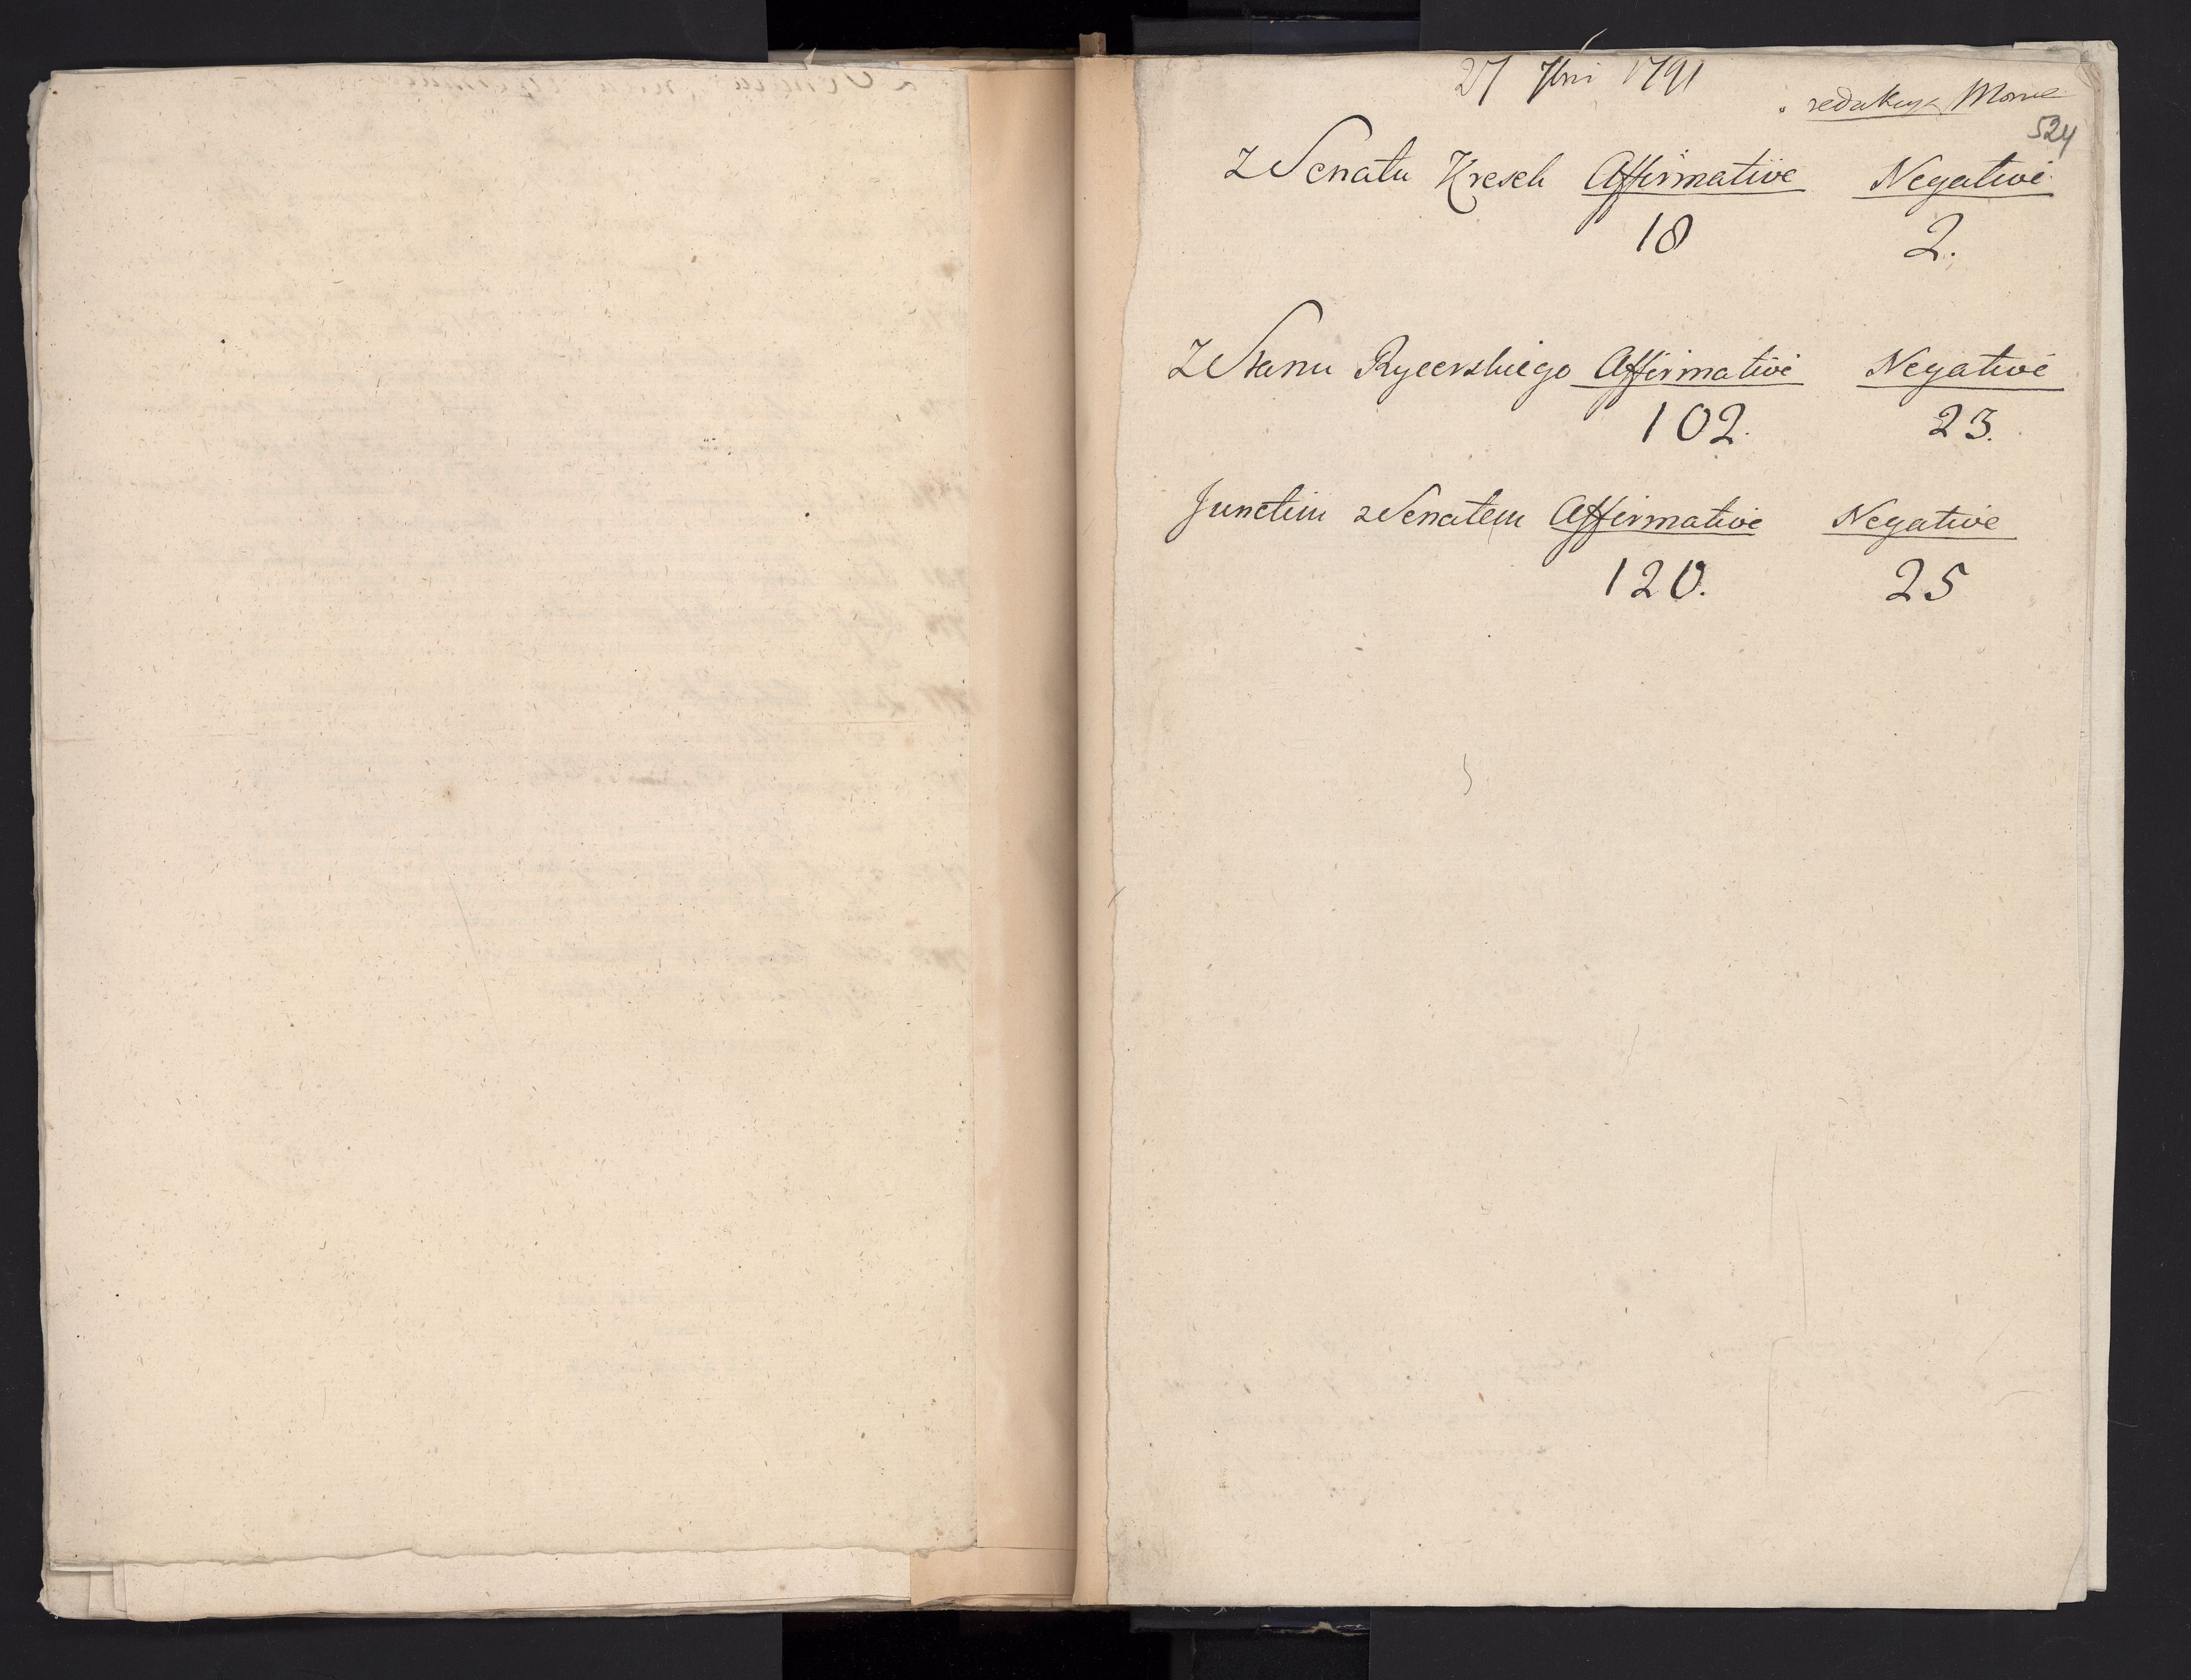 27 7bri 1791
redakcya
524
z Senatu Kresek Affirmative Negative
18 2.
z Stanu Rycerskiego Affirmative Negative
102. 23.
Junctim z Senatem Affirmative Negative
120. 25